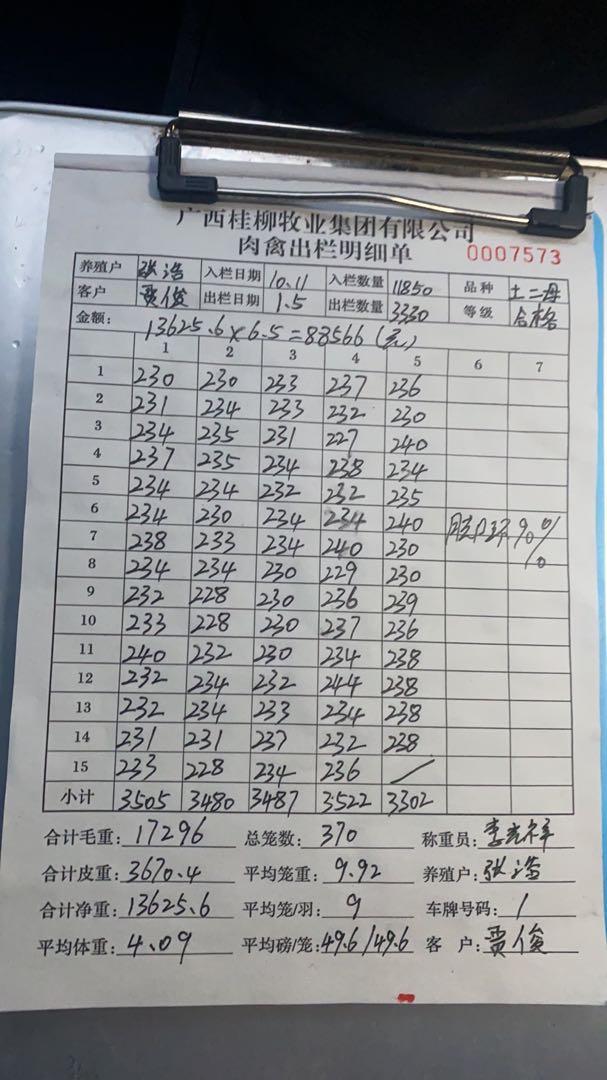 广西桂柳牧业集团有限公司
肉禽出栏明细单 0007573
养殖户 张浩 入栏日期 10.11 入栏数量 11850 品种 土二母
客户 贾俊 出栏日期 1.5 出栏数量 3330 等级 合格
金额: 13625.6×6.5=88566(元)
1 2 3 4 5 6 7
1 230 230 233 237 236
2 231 234 233 232 230
3 234 235 231 227 240
4 237 235 234 238 234
5 234 234 232 232 235
6 234 230 234 234 240
7 238 233 234 240 230 90%
8 234 234 230 229 230
9 232 228 230 236 239
10 233 228 230 237 236
11 240 232 230 234 238
12 232 234 232 244 238
13 232 234 233 234 238
14 231 231 237 232 238
15 233 228 234 236 /
小计 3505 3480 3487 3522 3302
合计毛重: 17296 总笼数: 370 称重员:
合计皮重: 3670.4 平均笼重: 9.92 养殖户: 张浩
合计净重: 13625.6 平均笼/羽: 9 车牌号码: 1
平均体重: 4.09 平均磅/笼: 49.6/49.6 客 户: 贾俊